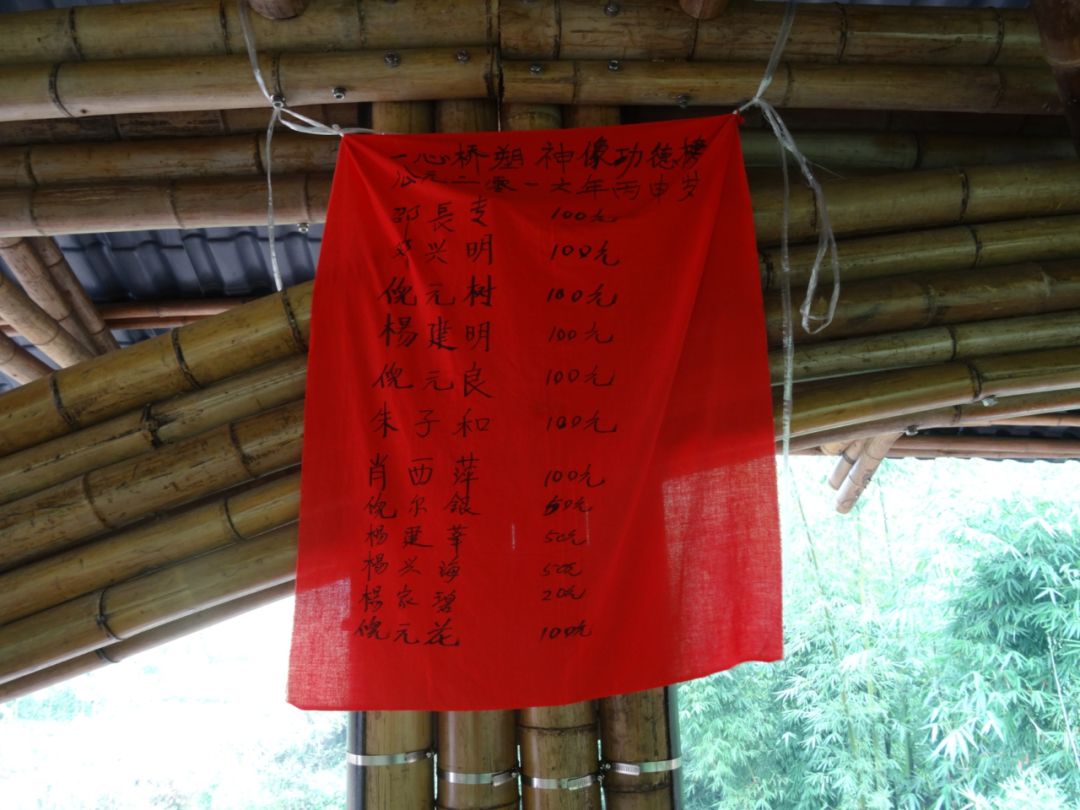 一心桥塑神像功德榜
公元二零一六年丙申岁
邵長专 100元
兴明 100元
倪元树 100元
楊建明 100元
倪元良 100元
朱子和 100元
肖西萍 100元
倪尔銀 50元
楊建華 50元
楊兴海 50元
楊家碧 20元
倪元花 100元